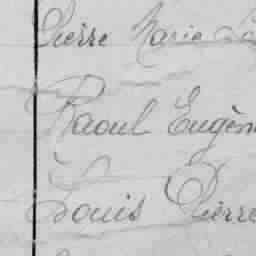 Pierre Marie
Raoul Eugèn
Louis Pierre